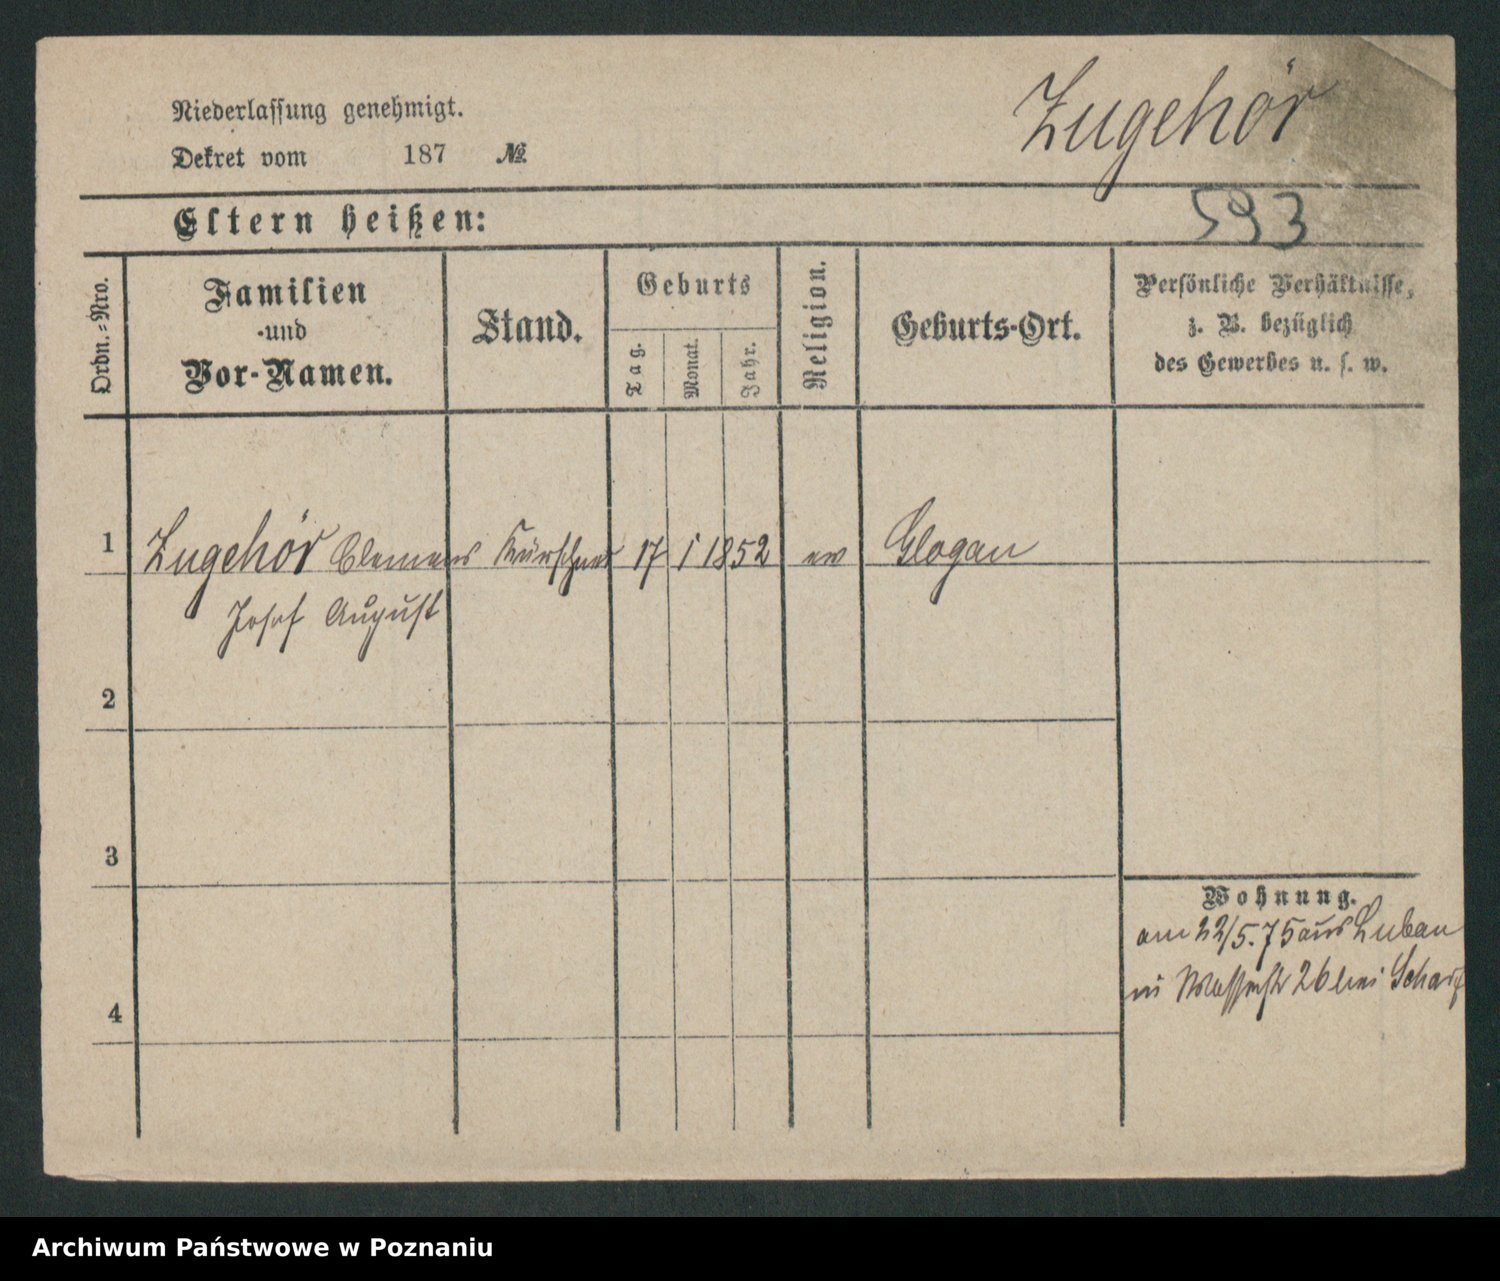 Niederlassung genehmigt.
Zugehör
Dekret vom 187 №
Eltern heißen:
593
Ordn.-Nro.
Familien
-und
Vor-Namen.
Stand.
Geburts
Tag.
Monat.
Jahr.
Religion.
Geburts-Ort.
Persönliche Verhältnisse,
z. B. bezüglich
des Gewerbes u. s. w.
1 Zugehör Clemens Kürschner 17 1 1852 ev Glogau
Josef August
2
3
Wohnung.
am 22/5.75 aus Luban
in Wasserstr 26 bei Scharf
4
Archiwum Państwowe w Poznaniu